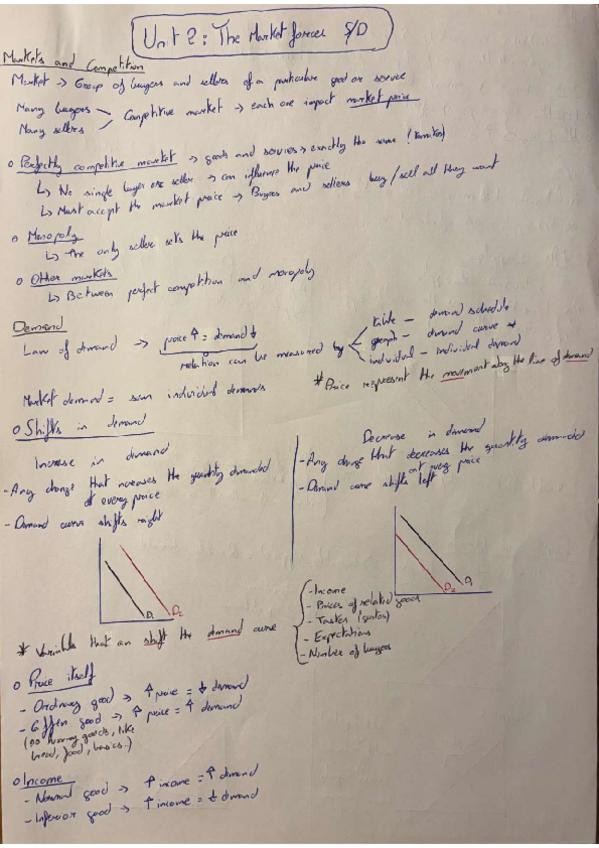 Unit 2: The Market forces S/D
Markets and Competition
Market → Group of buyers and sellers of a particular good or service
Many buyers
Many sellers
Competitive market → each one impact market price
o Perfectly competitive market → goods and services → exactly the same
↳ No single buyer or seller → can influence the price
↳ Must accept the market price → Buyers and sellers buy / sell all they want
o Monopoly
↳ The only seller sets the price
o Other markets
↳ Between perfect competition and monopoly
Demand
Law of demand → price ↑ = demand ↓
relation can be measured by
table — demand schedule
graph — demand curve *
individual — individual demand
* Price represent the movement along the line of demand
Market demand = sum individual demands
o Shifts in demand
Increase in demand
- Any change that increases the quantity demanded
at every price
- Demand curve shifts right
D1 D2
Decrease in demand
- Any change that decreases the quantity demanded
at every price
- Demand curve shifts left
D2 D1
* Variable that can shift the demand curve
- Income
- Prices of related goods
- Tastes (gustos)
- Expectations
- Number of buyers
o Price itself
- Ordinary good → ↑ price = ↓ demand
- Giffen good → ↑ price = ↑ demand
(no luxury goods, like
bread, food, basics..)
o Income
- Normal good → ↑ income = ↑ demand
- Inferior good → ↑ income = ↓ demand